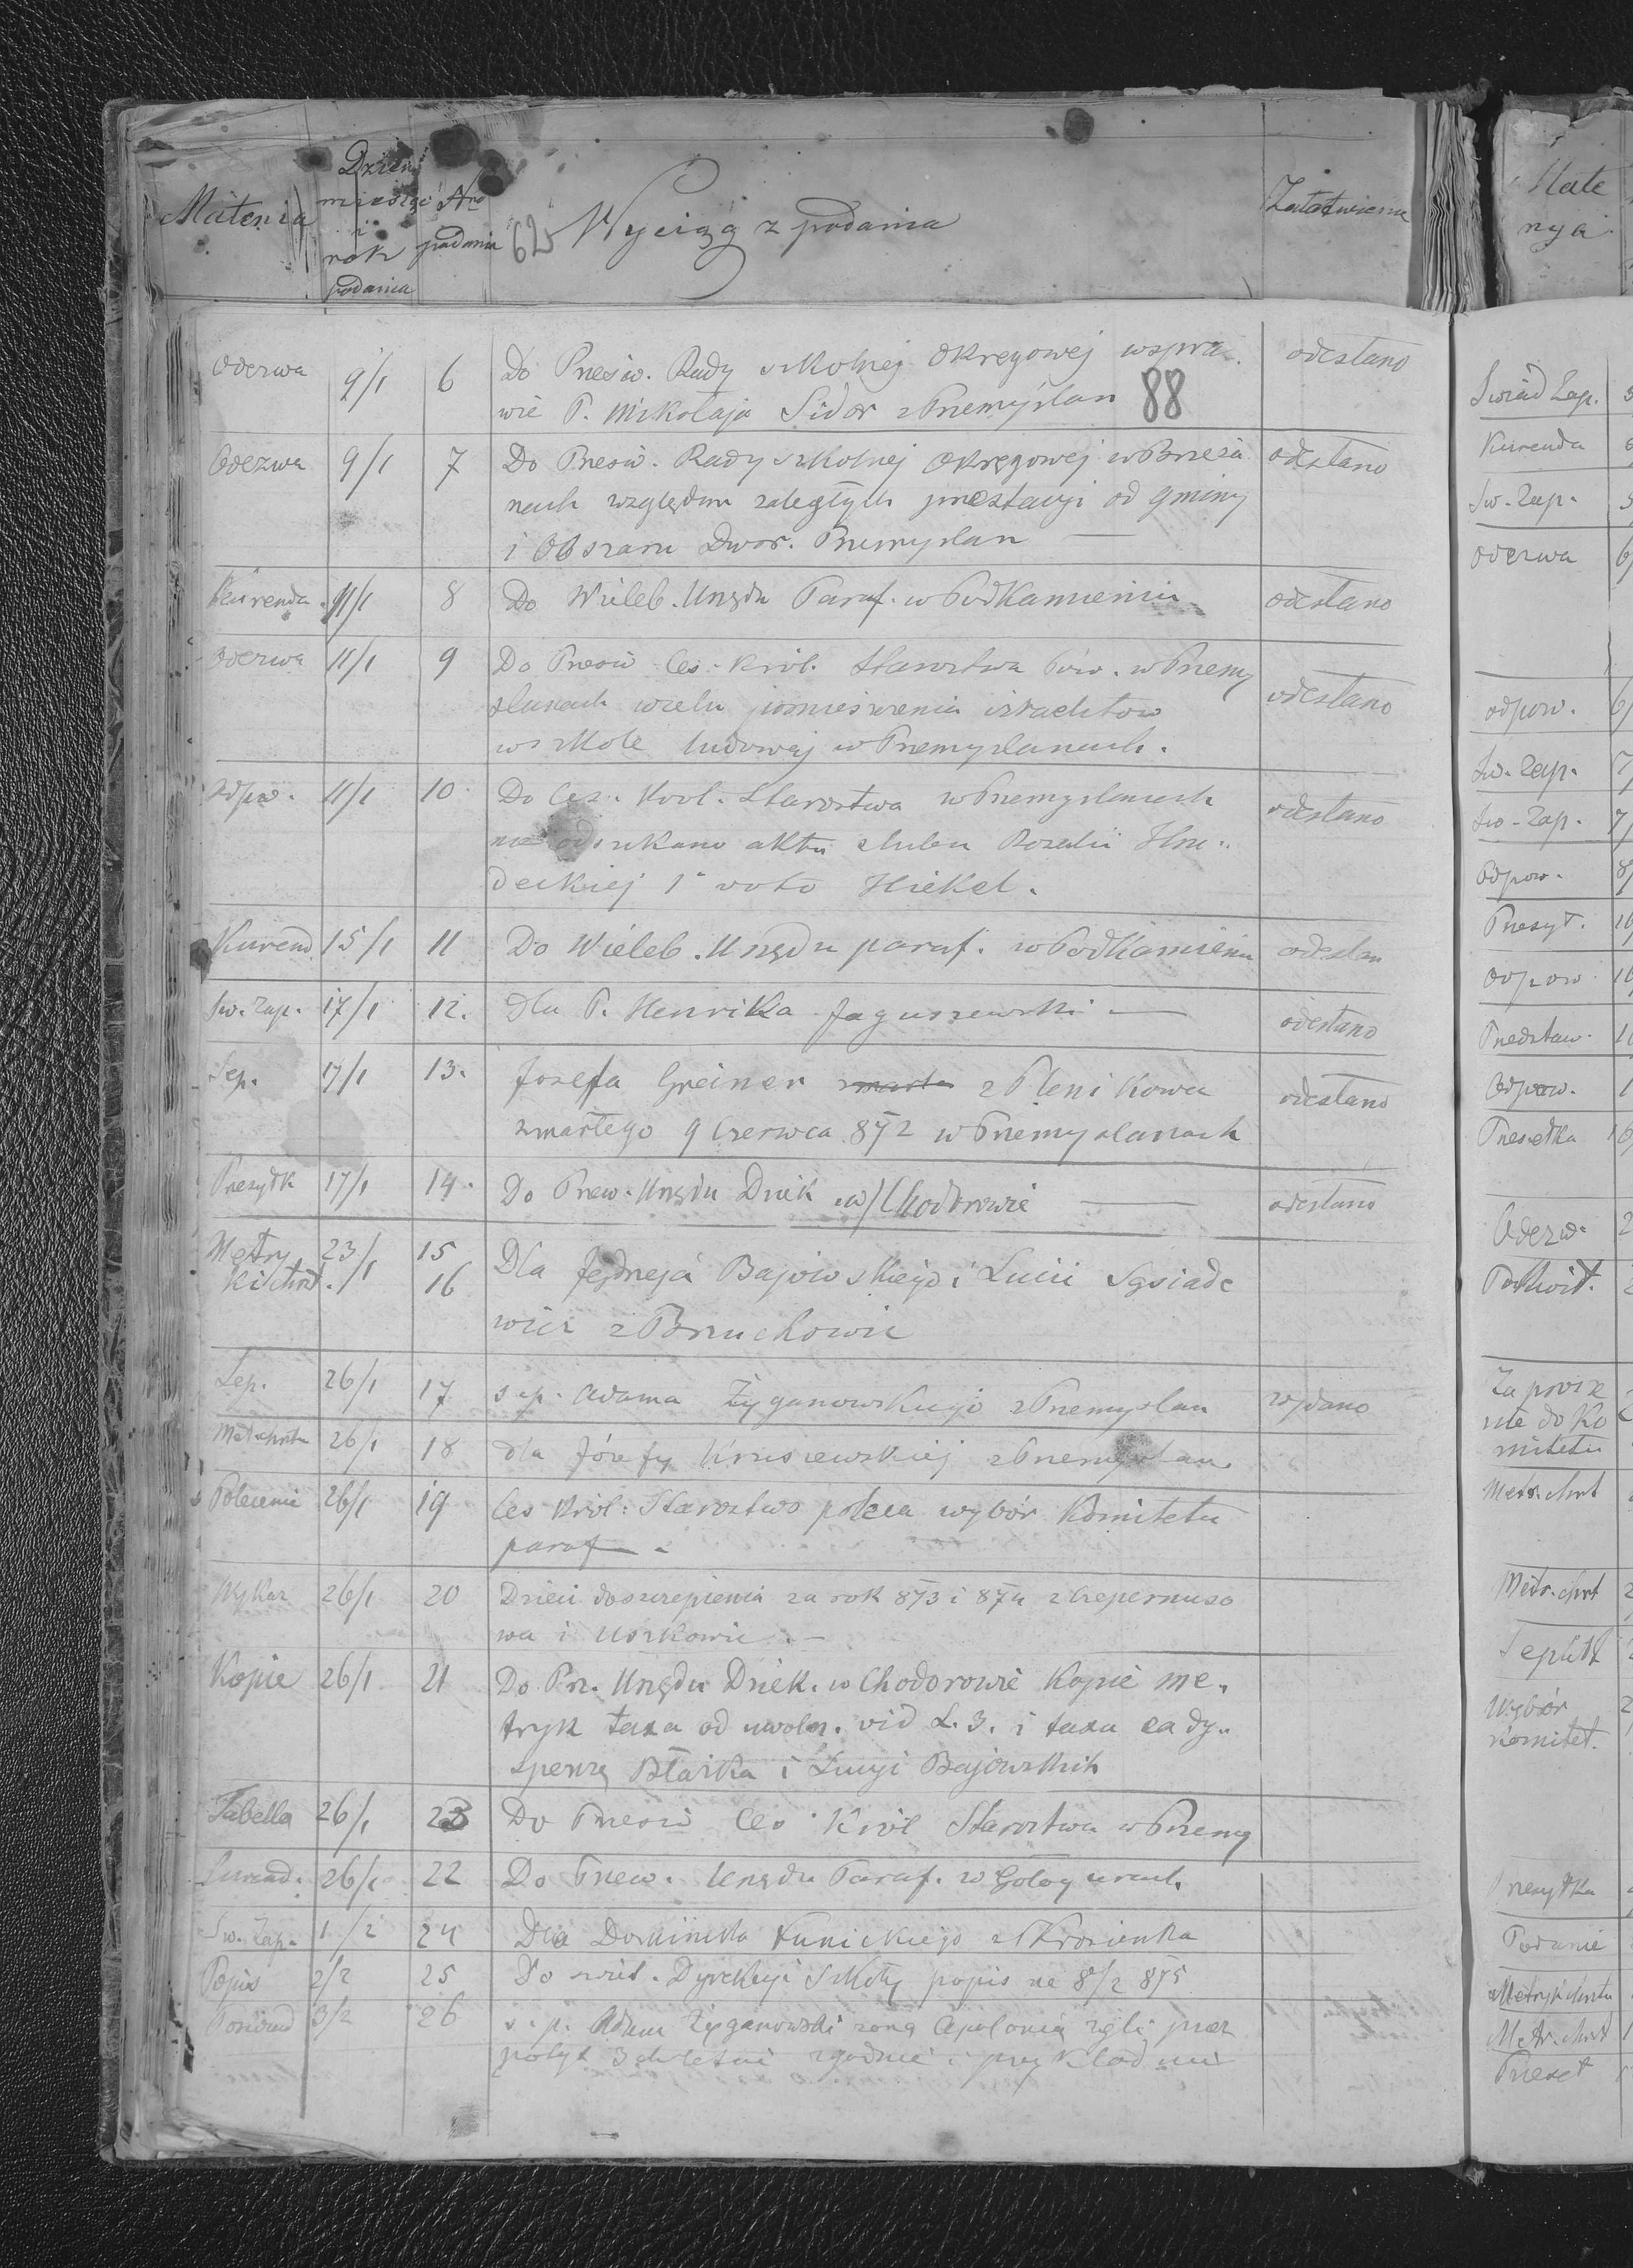 Materia
Dzień
miesiąc
i
rok
podania
Nro
podania
62
Wyciąg z podania
Załatwienie
Odezwa 9/1 6 Do Przesw. Rady szkolnej Okręgowej wspra- odesłano
wie P. Mikołaja Sidor z Przemyślan 88
Odezwa 9/1 7 Do Przesw. Rady szkolnej Okręgowej w Brzeża odesłano
nach względem zaległych prestacyi od gminy
i Obszaru Dwor. Przemyslan —
Kurenda 11/1 8 Do Wieleb. Urzędu Paraf. w Podkamieniu odesłano
Odezwa 11/1 9 Do Przesw Ces. Król. Starostwa Pow. w Przemy
slanach wcelu pomieszczenia izraelitow odesłano
wszkole ludowej w Przemyslanach.
odpow. 11/1 10. Do Ces. Krol. Starostwa w Przemyslanach odesłano
nie odszukano aktu slubu Rozalii Hru-
deckiej 1º voto Hickel.
Kurend. 15/1 11 Do Wieleb. Urzędu paraf. w Podkamieniu odesłan
Sw. zap. 17/1 12. Dla P. Henrika Jaguszewski — odesłano
Sep. 17/1 13. Josefa Greiner z Plenikowa odesłano
zmarłego 9 Czerwca 872 w Przemyslanach
Przesyłk 17/1 14. Do Przew. Urzędu Dziek w/Chodorowie — odesłano
Metry 23/1 15 Dla Jędrzeja Bajowskiego i Lucii Sąsiade
ki chrzt. 16
wicz z Brzuchowic
Sep. 26/1 17 s. p. Adama Zyganowskiego z Przemyslan wydano
Met chrztu 26/1 18 dla Józefy Kruszewskiej z Przemyslan
Polecenie 26/1 19 Ces Król: Starostwo poleca wybór Komitetu
paraf.
Wykaz 26/1 20 Dzieci do szczepienia za rok 873 i 874 z Czepernoso
wa i Uszkowic. —
Kopie 26/1 21 Do Prz. Urzędu Dziek. w Chodorowie Kopie me-
tryk taxa od uwoln. vid L. 3. i taxa za dy-
spenzę Błażka i Lucyi Bajowskich
Tabella 26/1 23 Do Przesw Ces Król Starostwa w Przemy
Kurend. 26/1 22 Do Przew. Urzędu Paraf. w Gołogurach.
Sw. Zap. 1/2 24 Dla Dominika Kunickiego z Krosienka
Popis 2/2 25 Do swiet. Dyrekcyi Szkoły popis na 8/2 875
3/2 26 s. p. Adam Zyganowski zona Apolonia żyli przez
3 letni zgodnie i przykładnie
Mate
rya
Swiad Zap.
Kurenda
Sw. Zap.
Odezwa 6/
odpow. 6/
Sw. Zap. 7/
Sw. Zap. 7/
Odpow. 8/
Przesył. 10/
Odpow 10/
Przedstaw. 1
Odpow. 1
Przesełka 16/
Odezw. 2
Pokwit. 2
Zaprosze
nie do Ko
mitetu
Metr. chrt
Metr. chrt 2
Sepult
Wybór 2
Komitet.
Przesyłka
Podanie
Metryk chrztu
Metr. chrzt 1
Przeset